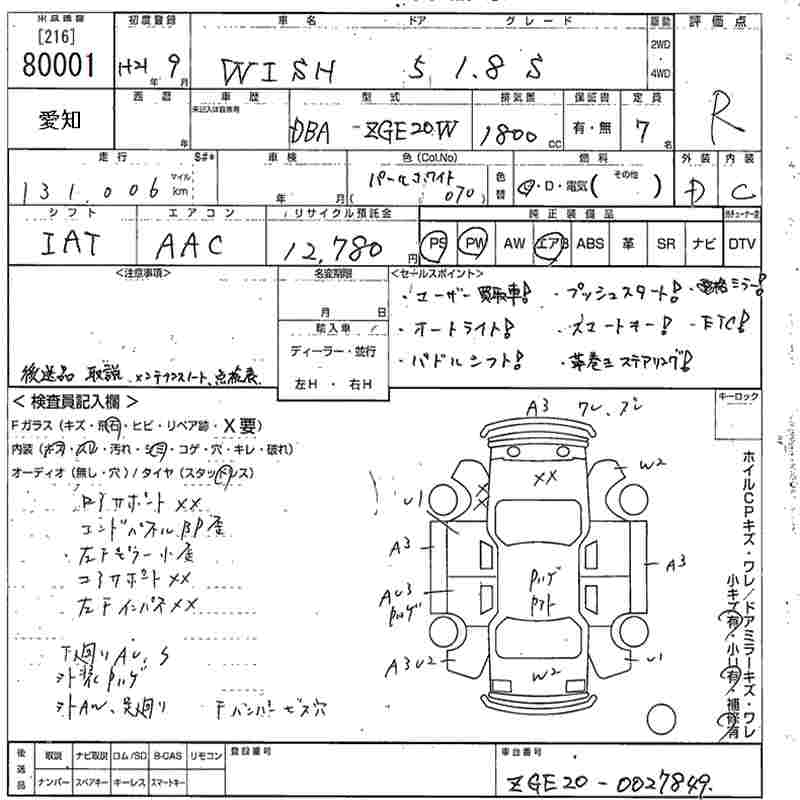 [216]
80001
初度登録 車名 ドア グレード 駆動 評価点
H21年 9月 WISH 5 1.8 S 2WD・4WD R
愛知
西暦 車歴 型式 排気量 保証書 定員
年 未記入は自家用 DBA - ZGE20W 1800cc 有・無 7名
走行 S#* 車検 色 (Col.No) 色替 燃料 外装 内装
131,006 マイル km 年 月 パールホワイト (070) G・D・電気( その他 ) D C
シフト エアコン リサイクル預託金 純正装備品
IAT AAC 12,780円 PS PW AW エアB ABS 革 SR ナビ DTV
<注意事項> 名変期限 <セールスポイント>
月 日
輸入車
ディーラー・並行
左H ・ 右H
・ユーザー買取車! ・プッシュスタート!
・オートライト! ・スマートキー! ・ETC!
・パドルシフト! ・革巻きステアリング!
後送品 取説、メンテナンスノート、点検表
< 検査員記入欄 > キーロック
Fガラス (キズ・飛石・ヒビ・リペア跡・X要)
内装 (キズ・スレ・汚れ・シミ・コゲ・穴・キレ・破れ)
オーディオ (無し・穴) / タイヤ (スタッドレス)
右Fサポート XX
エンドパネル BP 歪
コアサポート XX
左Fインパネ XX
下廻り AU、S
外装 ハゲ
外AW、足廻り Fバンパービス穴
A3 ワレ、ズレ
XX
W2
U1
A3
A3
AU3
ハゲ
A3U2
W2
U1
ホイルCPキズ・ワレ/ドアミラーキズ・ワレ
小キズ有・小U有・補修有
後送品 取説 ナビ取説 ロム/SD B-CAS リモコン 登録番号 車台番号
ナンバー スペアキー キーレス スマートキー ZGE20-0027849